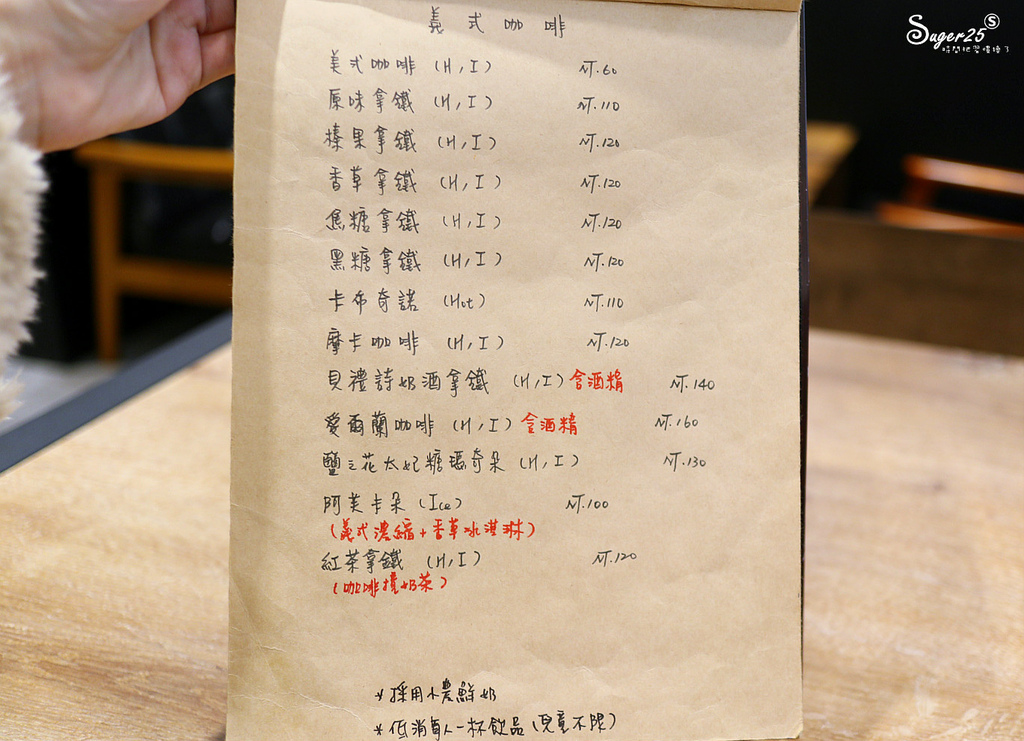 Suger25
時間把習慣換了
義式咖啡
美式咖啡 (H,I) NT.60
原味拿鐵 (H,I) NT.110
榛果拿鐵 (H,I) NT.120
香草拿鐵 (H,I) NT.120
焦糖拿鐵 (H,I) NT.120
黑糖拿鐵 (H,I) NT.120
卡布奇諾 (Hot) NT.110
摩卡咖啡 (H,I) NT.120
貝禮詩奶酒拿鐵 (H,I) 含酒精 NT.140
愛爾蘭咖啡 (H,I) 含酒精 NT.160
鹽之花太妃糖瑪奇朵 (H,I) NT.130
阿芙卡朵 (Ice) NT.100
(義式濃縮+香草冰淇淋)
紅茶拿鐵 (H,I) NT.120
(咖啡攪奶茶)
*採用小農鮮奶
*低消每人一杯飲品(兒童不限)